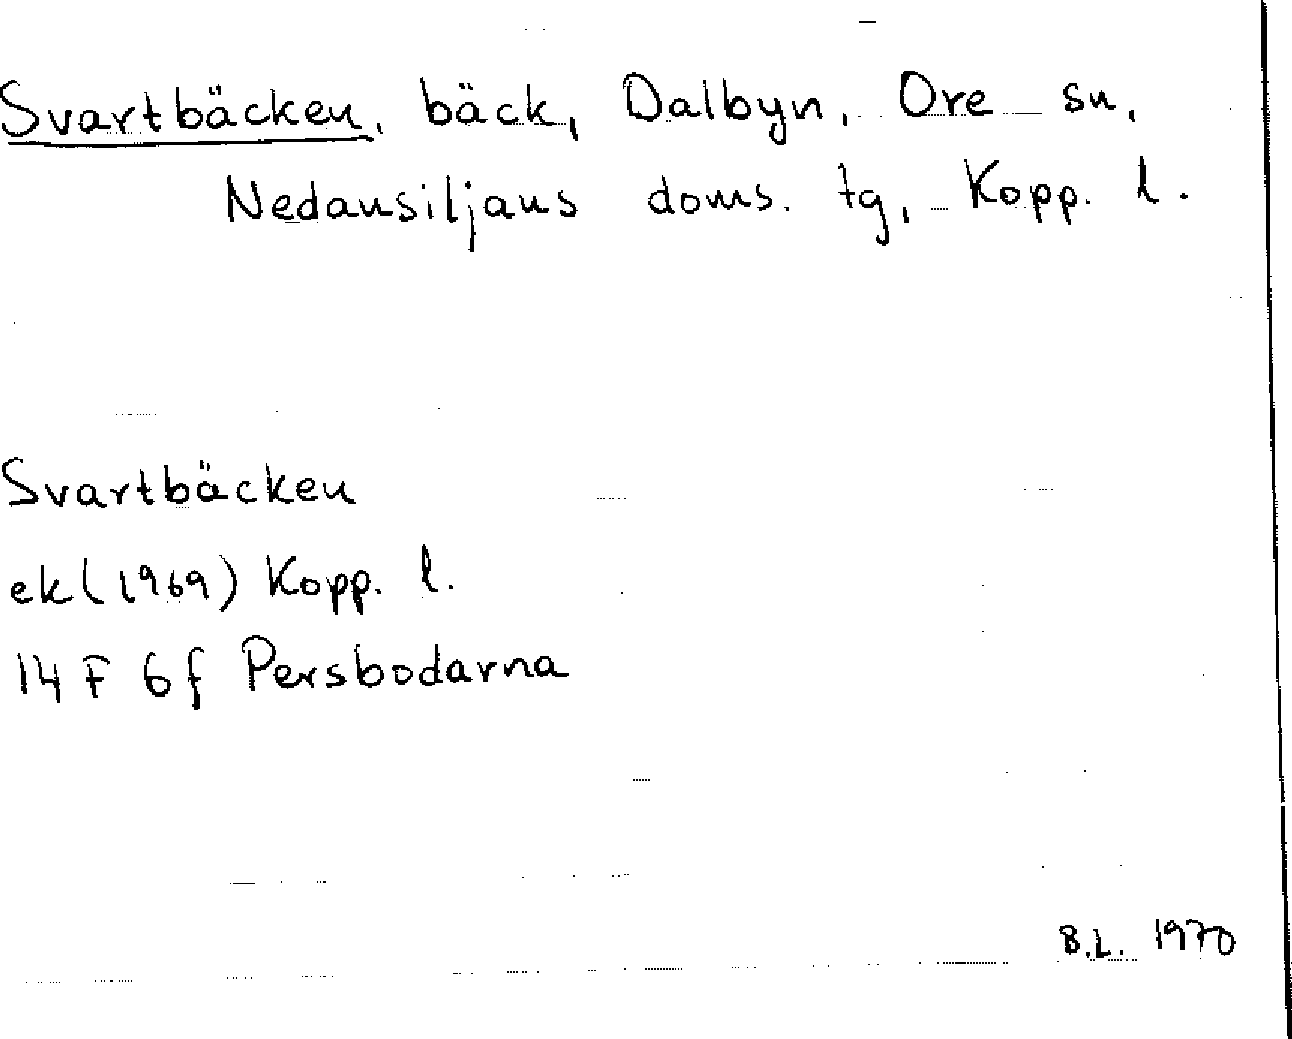 Svartbäcken, bäck, Dalbyn, Ore sn,
Nedansiljans doms. tg, Kopp. l.
Svartbäcken
ek (1969) Kopp. l.
14 F 6f Persbodarna
B.L. 1970